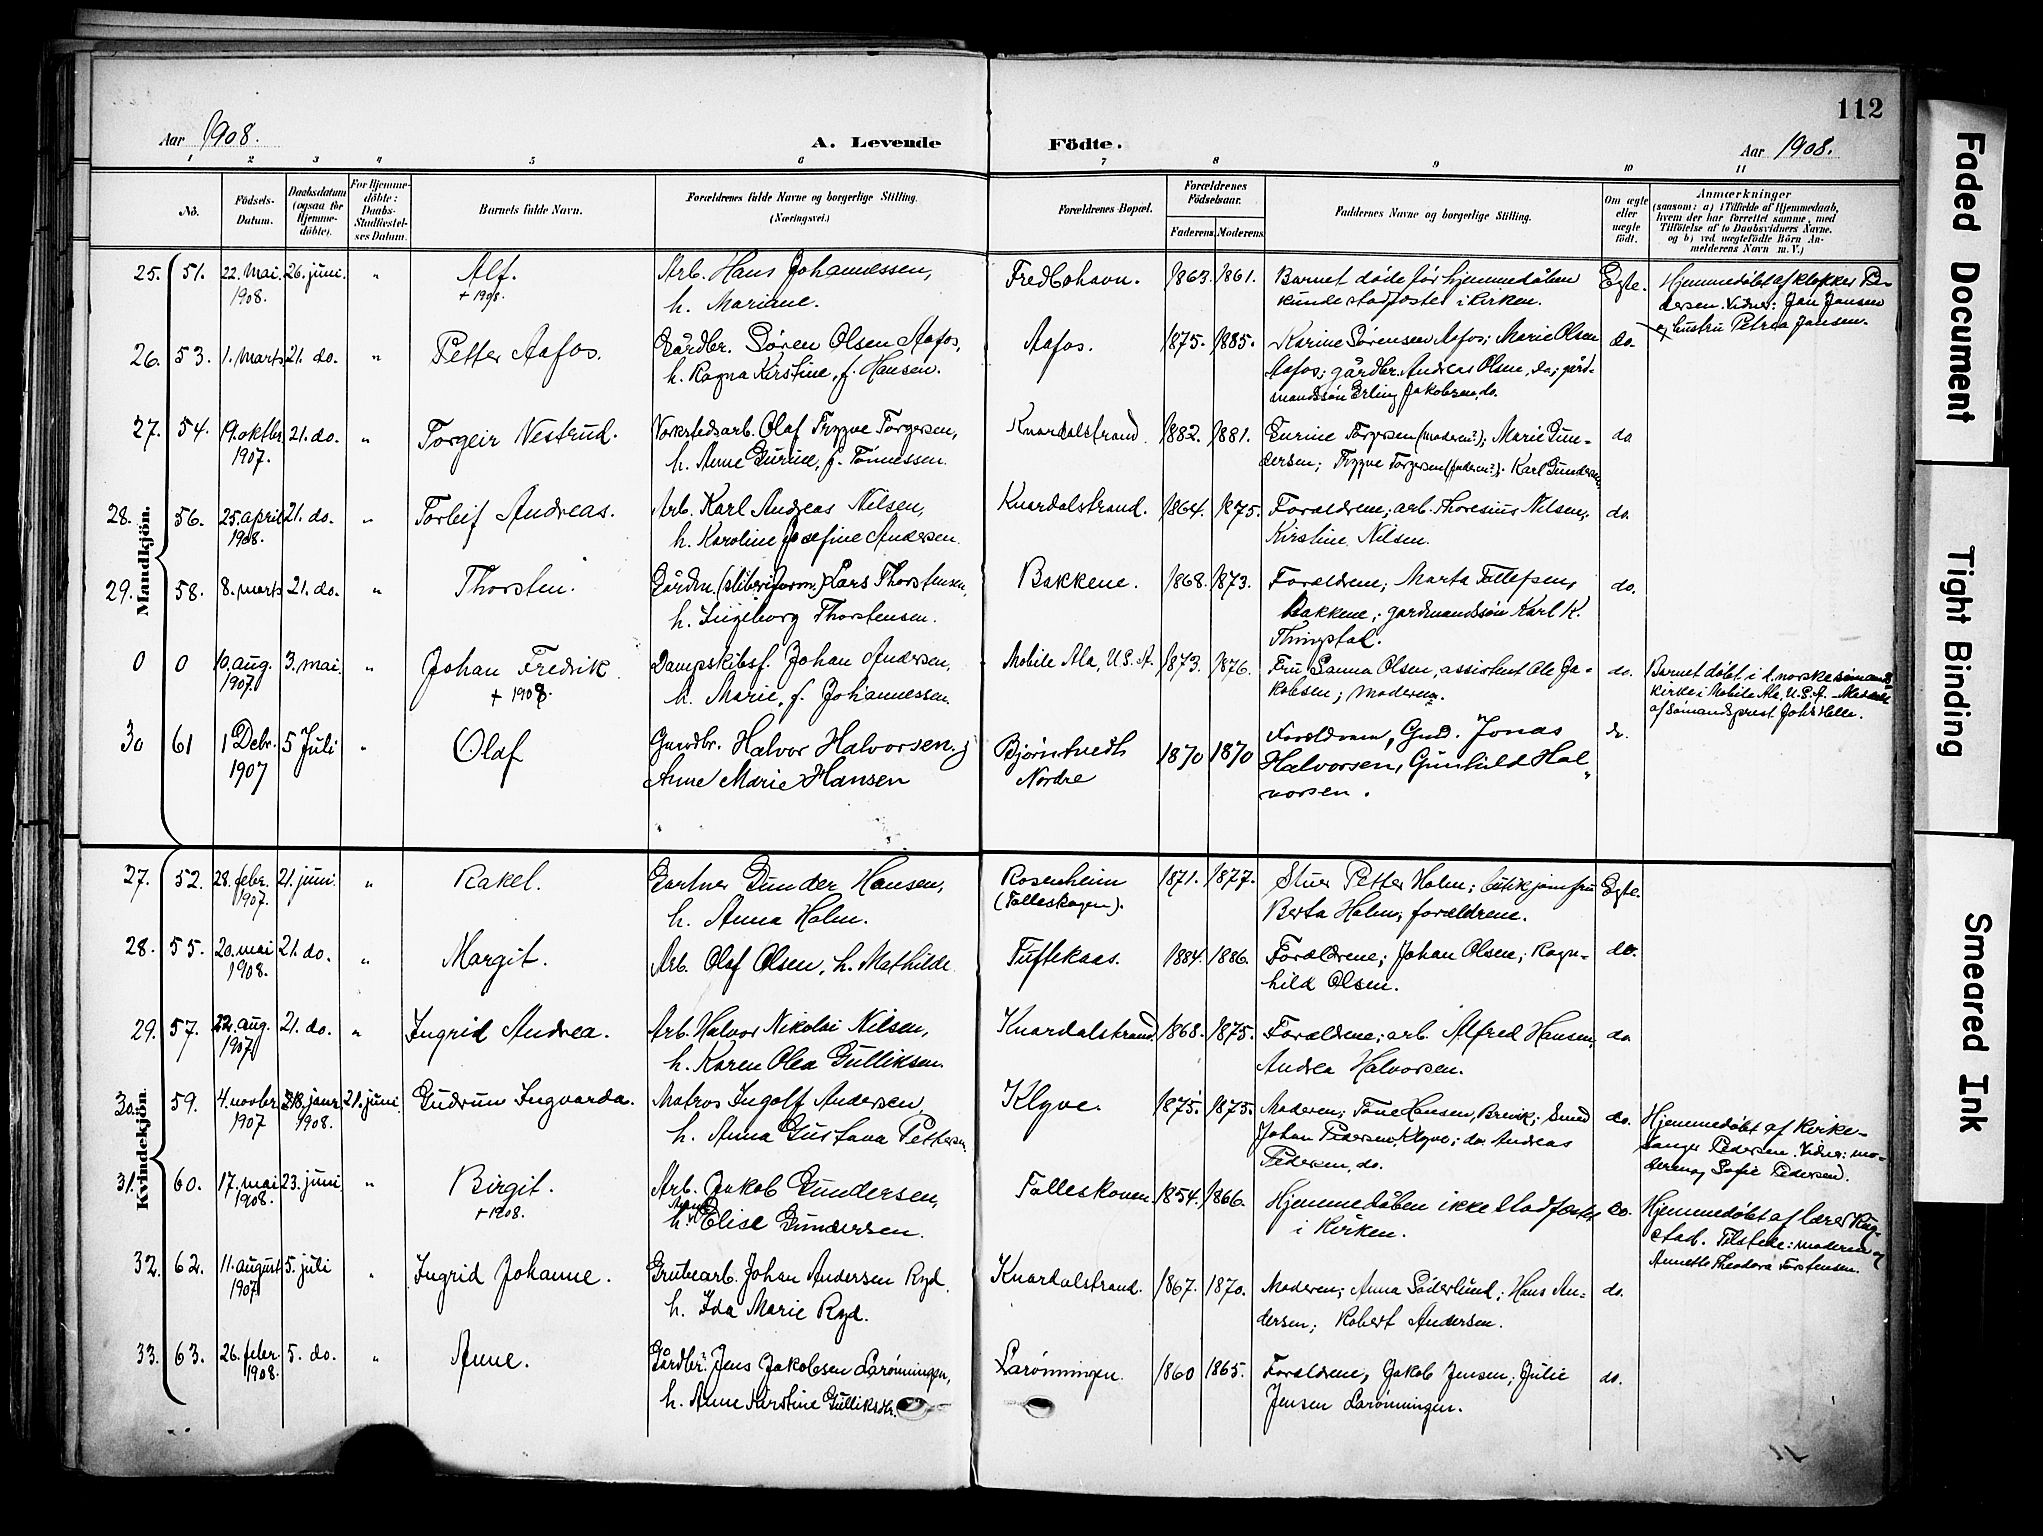 112
Aar 1908.
A. Levende Födte.
Aar 1908.
1 2 3 4 5 6 7 8 9 10 11
No.
Födsels-Datum.
Daabsdatum (ogsaa for Hjemme-döbte).
For Hjemme-döbte: Daabs-Stadfæstel-ses Datum.
Barnets fulde Navn.
Forældrenes fulde Navne og borgerlige Stilling.
(Næringsvei.)
Forældrenes Bopæl.
Forældrenes Födselsaar.
Faderens. Moderens.
Faddernes Navne og borgerlige Stilling.
Om ægte eller uægte födt.
Anmærkninger
(saasom: a) i Tilfælde af Hjemmedaab,
hvem der har forrettet samme, med
Tilföielse af to Daabsvidners Navne.
og b) ved uægtefödte Börn An-
melderens Navn m. V.)
Mandkjön.
25. 51. 22. mai 1908. 26. juni. " Alf. + 1908. Arb. Hans Johannessen, h. Mariane. Fredbohavn. 1863. 1861. Barnet døde før hjemmedåben kunde stadfæstes i kirken. Egte. Hjemmedøbt af klokker Pe-dersen. Vidner: Jan Jansen og hustru Petrea Jansen.
26. 53. 1. marts 21. do. " Petter Aafos. Gårdbr. Søren Olsen Aafos, h. Ragna Kirstine, f. Hansen. Aafos. 1875. 1885. Karine Sørensen Aafos; Marie Olsen Aafos; gårdbr. Andreas Olsen, do; gård-mandssøn Erling Jakobsen, do. do.
27. 54. 19. oktbr. 1907. 21. do. " Torgeir Nestrud. Verkstedsarb. Olaf Trygve Torgersen, h. Anne Gurine, f. Tønnessen. Knardalstrand. 1882. 1881. Gurine Torgersen (moderen?); Marie Gun-dersen; Trygve Torgersen (faderen?); Karl Gundersen do
28. 56. 25. april 1908. 21. do. " Torleif Andreas. Arb. Karl Andreas Nilsen, h. Karoline Josefine Andersen. Knardalstrand. 1864. 1875. Forældrene; arb. Thoresius Nilsen; Kirstine Nilsen. do.
29. 58. 8. marts 21. do. " Thorsten. Gårdm. (sliberiform.) Lars Thorstensen, h. Ingeborg Thorstensen. Bakkene. 1868. 1873. Forældrene; Marta Tollefsen, Bakkene; gardmandssøn Karl K. do.
0 0 10. aug. 1907. 3. mai. " Johan Fredrik. + 1908. Dampskibsf. Johan Andersen, h. Marie, f. Johannessen. Mobile Ala, U.S.A. 1873. 1876. Fru Sanna Olsen, assistent Ole Ja-kobsen; moderen. do. Barnet døbt i d. norske sømands-kirke i Mobile Ala, U.S.A. af sømandsprest Johs Helle.
30 61 1 Debr. 1907 5 Juli " Olaf Gaardbr. Halvor Halvorsen og Anne Marie Hansen Bjørntvedt Nordre 1870 1870 Forældrene, Gud. Jonas Halvorsen, Gunhild Hal-vorsen. do.
Kvindekjön.
27. 52. 28. febr. 1907. 21. juni. " Rakel. Gartner Gunder Hansen, h. Anna Holm. Rosenheim (Folleskogen). 1871. 1877. Stuer Petter Holm; butikjomfru Berta Holm; forældrene. Egte.
28. 55. 20. mai 1908. 21. do. " Margit. Arb. Olaf Olsen, h. Mathilde. Tuftekaas. 1884. 1886. Forældrene; Johan Olsen; Ragn-hild Olsen. do.
29. 57. 22. aug. 1907. 21. do. " Ingrid Andrea. Arb. Halvor Nikolai Nilsen, h. Karen Olea Gulliksen. Knardalstrand. 1868. 1875. Forældrene; arb. Alfred Hansen, Andrea Halvorsen. do.
30. 59. 4. novbr. 1907 28. janr. 1908. 21. juni. Gudrun Ingvarda. Matros Ingolf Andersen, h. Anna Gustava Pettersen. Klyve. 1875. 1875. Moderen; Tone Hansen, Brevik; Smed Johan Pedersen, Klyve; do. Andreas Pedersen, do. do. Hjemmedøbt af kirke-sanger Pedersen. Vidner: mo-deren og Sofie Pedersen.
31. 60. 17. mai 1908. 23. juni. " Birgit. + 1908. Arb. Jakob Gundersen, h. Elise Gundersen. Folleskoven. 1854. 1866. Hjemmedåben ikke stadfæstet i kirken. do. Hjemmedøbt af lærer Tilstede: moderen og Annette Theodora Torstensen.
32. 62. 11. august 1907. 5. juli " Ingrid Johanne. Grubearb. Johan Andersen Ryd. h. Ida Marie Ryd. Knardalstrand. 1867. 1870. Moderen; Anna Söderlund; Hans An-dersen; Robert Andersen. do.
33. 63. 26. febr. 1908. 5. do. " Anne. Gårdbr. Jens Jakobsen Larønningen, h. Anne Karstine Gulliksdtr. Larønningen. 1860 1865. Forældrene, Jakob Jensen; Julie Jensen Larønningen. do.
Faded Document
Tight Binding
Smeared Ink